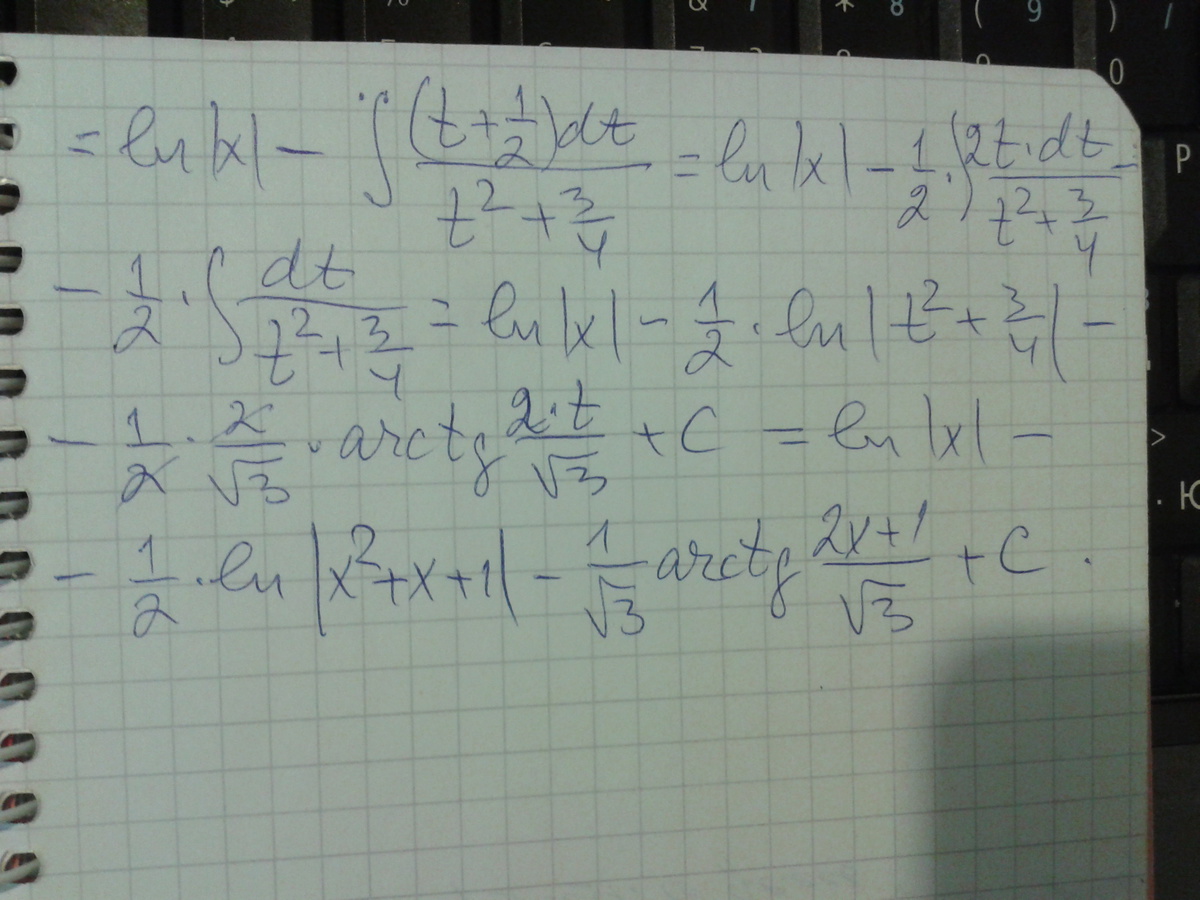 $ % & 7 * 8 ( 9 ) /
0
P
>
. Ю
= ln |x| − ∫ (t + 1/2)dt / (t² + 3/4) = ln |x| − 1/2 · ∫ 2t · dt / (t² + 3/4) −
− 1/2 · ∫ dt / (t² + 3/4) = ln |x| − 1/2 · ln | t² + 3/4 | −
− 1/2 · 2/√3 · arctg 2·t/√3 + C = ln |x| −
− 1/2 · ln |x² + x + 1| − 1/√3 arctg (2x+1)/√3 + C .